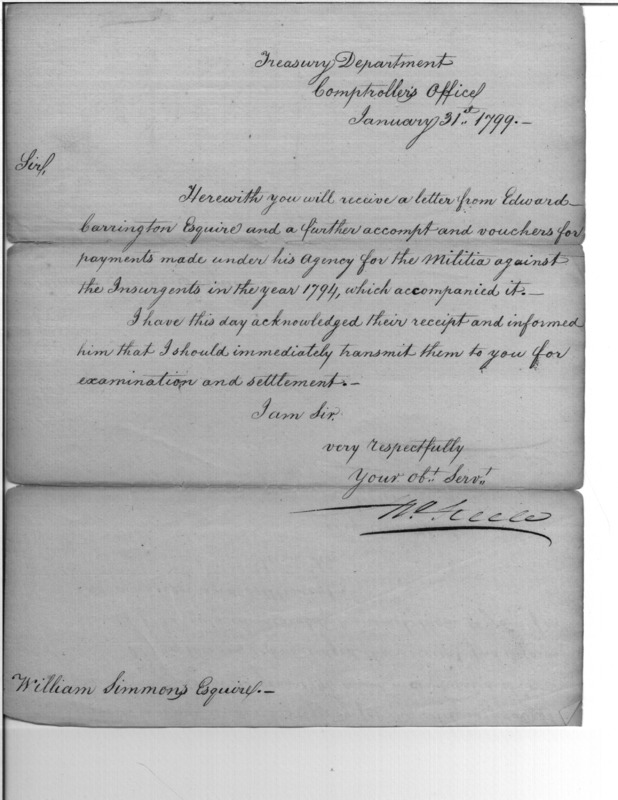 Treasury Department
Comptroller's Office
January 31st. 1799.-
Sir,
Herewith you will receive a letter from Edward
Carrington Esquire and a further accompt and vouchers for
payments made under his Agency for the Militia against
the Insurgents in the year 1794, which accompanied it.-
I have this day acknowledged their receipt and informed
him that I should immediately transmit them to you for
examination and settlement.-
I am Sir.
very respectfully
Your obt. Servt.
William Simmons Esquire.-